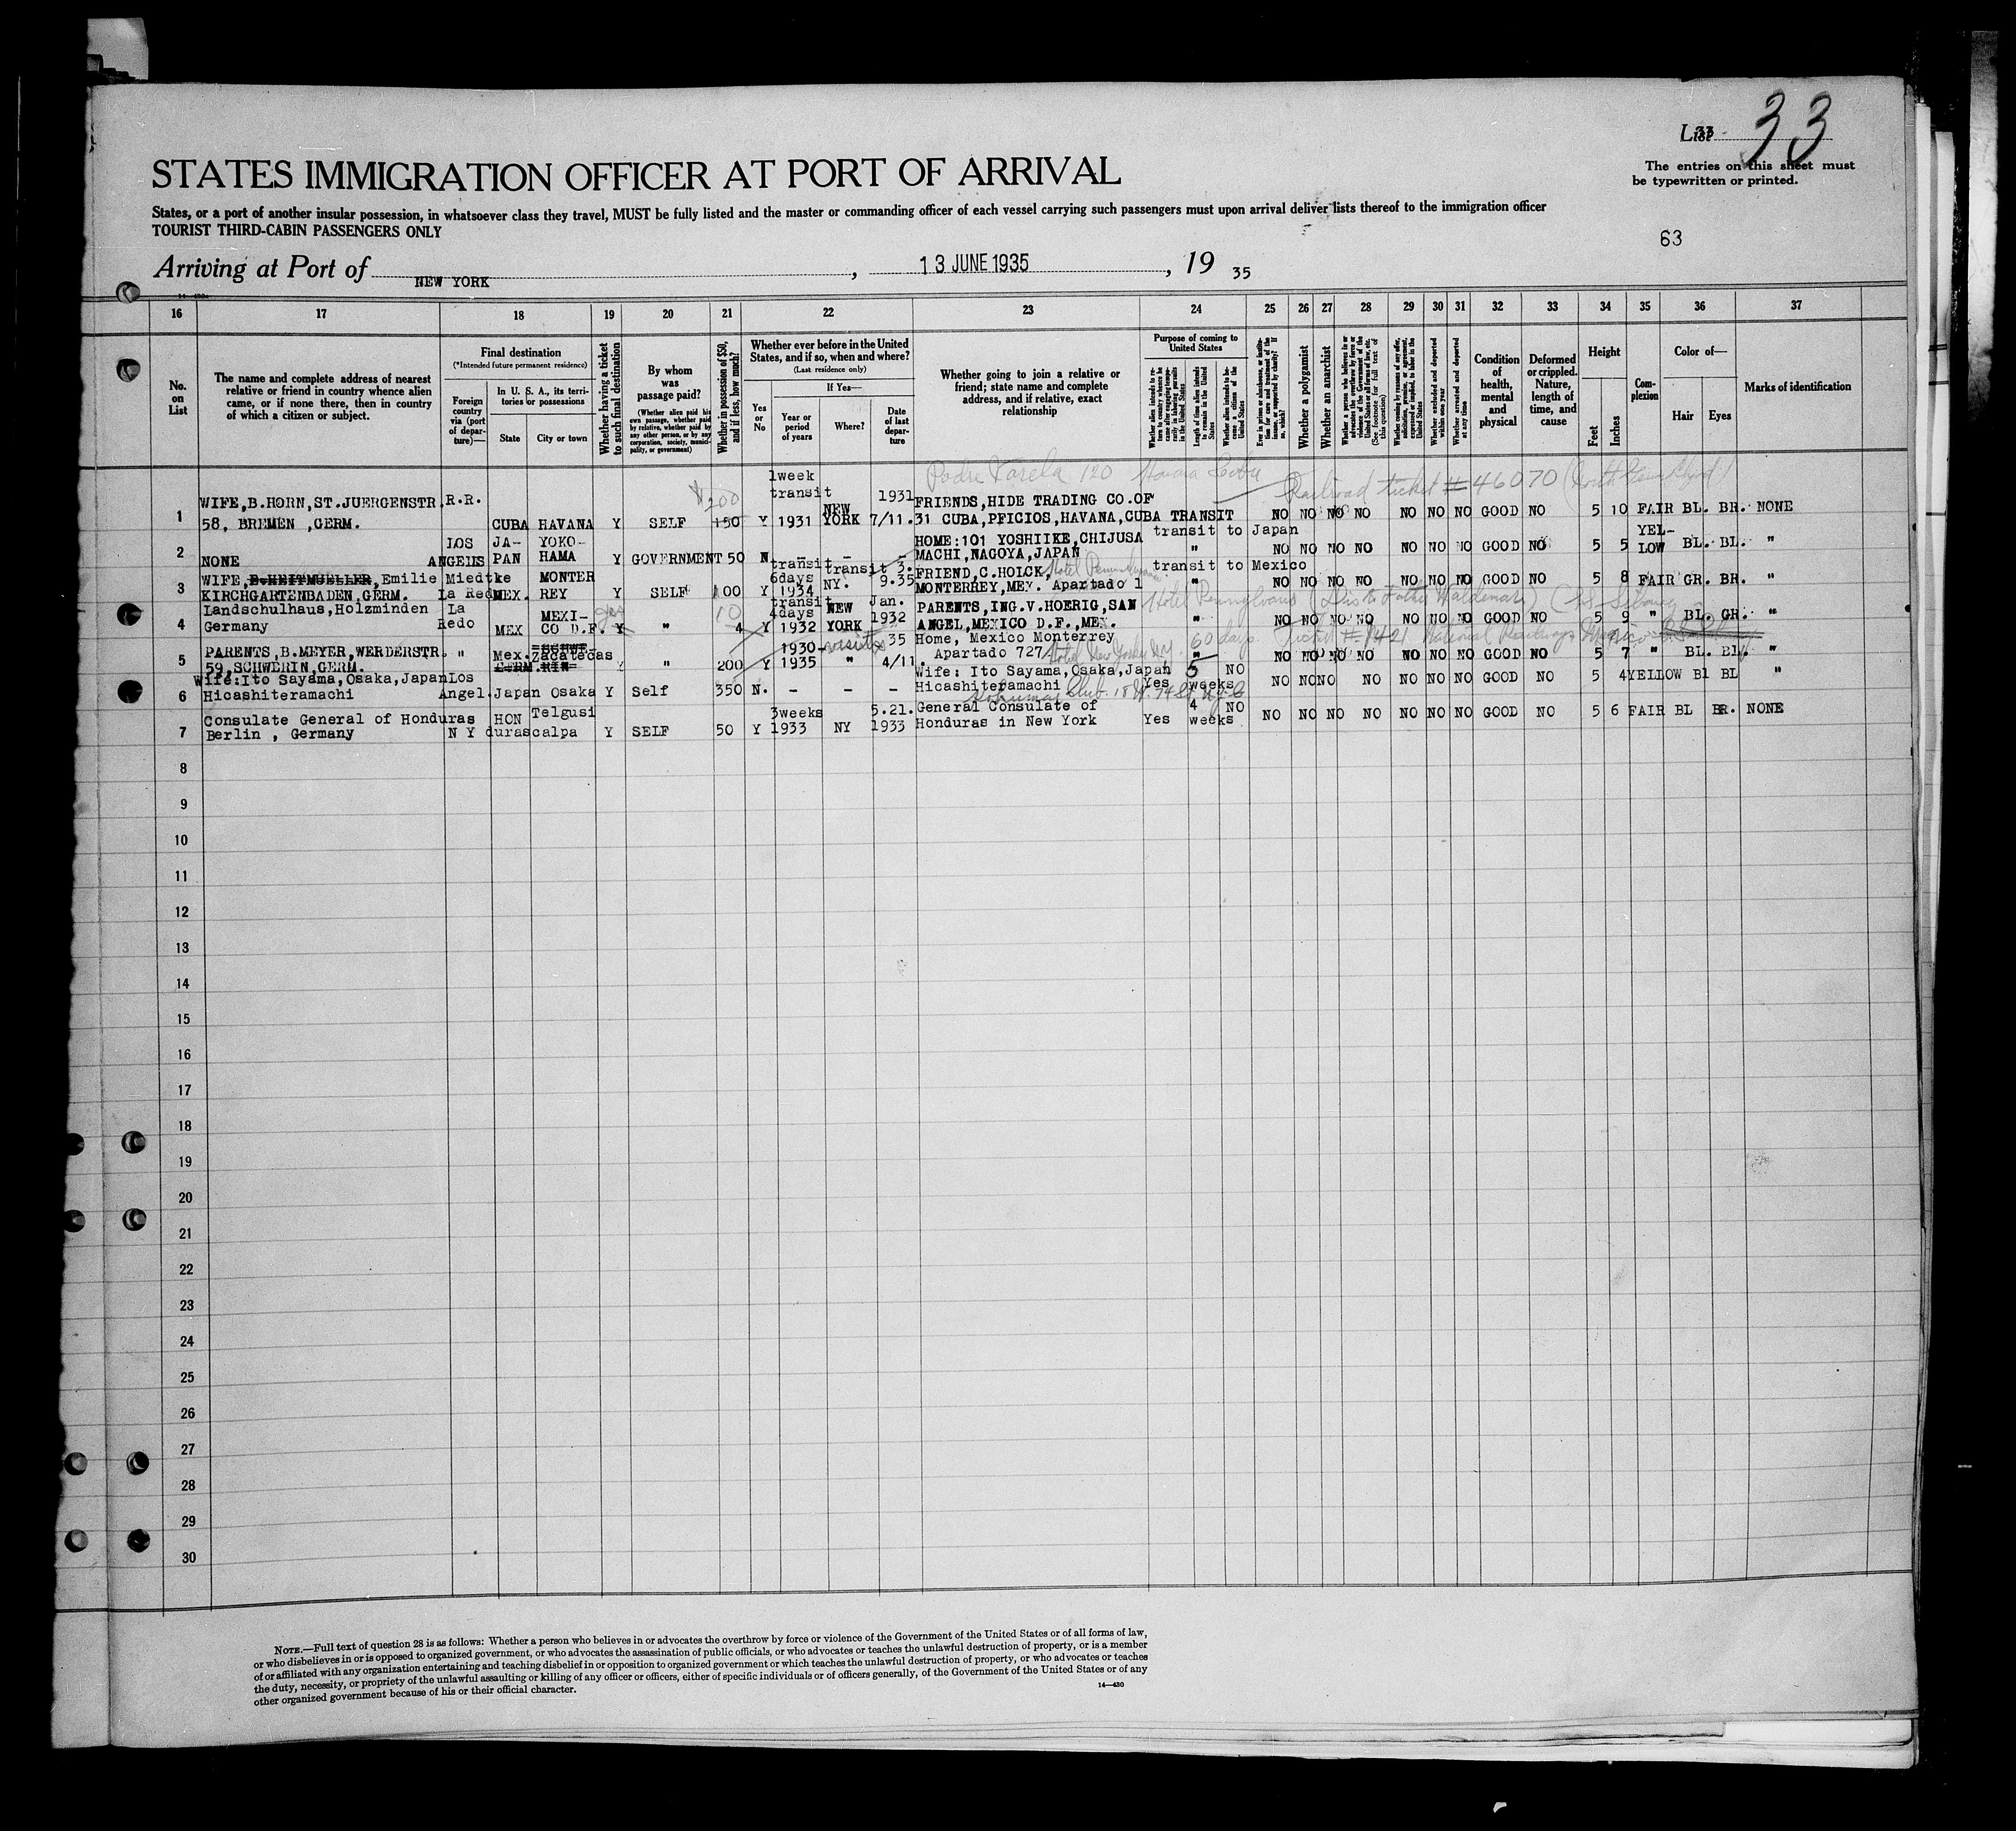 List 33
33
The entries on this sheet must
be typewritten or printed.
STATES IMMIGRATION OFFICER AT PORT OF ARRIVAL
States, or a port of another insular possession, in whatsoever class they travel, MUST be fully listed and the master or commanding officer of each vessel carrying such passengers must upon arrival deliver lists thereof to the immigration officer
TOURIST THIRD-CABIN PASSENGERS ONLY
63
Arriving at Port of NEW YORK, 13 JUNE 1935, 19 35
16 17 18 19 20 21 22 23 24 25 26 27 28 29 30 31 32 33 34 35 36 37
No. on List
The name and complete address of nearest relative or friend in country whence alien came, or if none there, then in country of which a citizen or subject.
Final destination
(*Intended future permanent residence)
Foreign country via (port of departure)—
In U. S. A., its territories or possessions
State
City or town
Whether having a ticket to such final destination
By whom was passage paid?
(Whether alien paid his own passage, whether paid by relative, whether paid by any other person, or by any corporation, society, municipality, or government)
Whether in possession of $50, and if less, how much?
Whether ever before in the United States, and if so, when and where?
(Last residence only)
Yes or No
If Yes—
Year or period of years
Where?
Date of last departure
Whether going to join a relative or friend; state name and complete address, and if relative, exact relationship
Purpose of coming to United States
Whether alien intends to return to country whence he came after engaging temporarily in laboring pursuits in the United States
Length of time alien intends to remain in the United States
Whether alien intends to become a citizen of the United States
Ever in prison or almshouse, or institution for care and treatment of the insane, or supported by charity? If so, which?
Whether a polygamist
Whether an anarchist
Whether a person who believes in or advocates the overthrow by force or violence of the Government of the United States or all forms of law, etc. (See footnote for full text of this question)
Whether coming by reasons of any offer, solicitation, promise, or agreement, expressed or implied, to labor in the United States
Whether excluded and deported within one year
Whether arrested and deported at any time
Condition of health, mental and physical
Deformed or crippled. Nature, length of time, and cause
Height
Feet
Inches
Complexion
Color of—
Hair
Eyes
Marks of identification
Padre Varela 120 Havana Cuba
Railroad ticket # 46070
1week
transit 1931
WIFE,B.HORN,ST.JUERGENSTR. R.R. $200 NEW FRIENDS,HIDE TRADING CO.OF
1 58, BREMEN ,GERM. CUBA HAVANA Y SELF 150 Y 1931 YORK 7/11. 31 CUBA,PFICIOS,HAVANA,CUBA TRANSIT NO NO NO NO NO NO NO GOOD NO 5 10 FAIR BL. BR. NONE
LOS JA- YOKO- HOME:101 YOSHIIKE,CHIJUSA transit to Japan YEL-
2 NONE ANGELES PAN HAMA Y GOVERNMENT 50 N. - - - MACHI,NAGOYA,JAPAN " NO NO NO NO NO NO NO GOOD NO 5 5 LOW BL. BL. "
transit transit 3.
WIFE,B.HEITMUELLER,Emilie Miedtke MONTER 6days NY. 9.35 FRIEND,C.HOLCK, transit to Mexico
3 KIRCHGARTENBADEN,GERM. La Redo MEX. REY Y SELF 100 Y 1934 MONTERREY,MEX. Apartado 1 " NO NO NO NO NO NO NO GOOD NO 5 8 FAIR GR. BR. "
Hotel Pennsylvania
Landschulhaus,Holzminden La MEXI- yes 10 transit 4days NEW Jan. 1932 PARENTS,ING.V.HOERIG,SAN
4 Germany Redo MEX CO D.F. Y " 4 Y 1932 YORK ANGEL,MEXICO D.F.,MEX. " NO NO NO NO NO NO NO GOOD NO 5 9 " BL. GR. "
60 days. Ticket # 1421 National Railways Mexico
PARENTS,B.MEYER,WERDERSTR. " Mex.Zacatecas 1930- visit 35 Home, Mexico Monterrey
5 59,SCHWERIN,GERM. Y " 200 Y 1935 " 4/11. Apartado 727 Hotel New Yorker NY. " NO NO NO NO NO NO NO GOOD NO 5 7 " BL. Bl. "
Wife:Ito Sayama,Osaka,Japan Los Wife: Ito Sayama,Osaka,Japan 5 NO
6 Hicashiteramachi Angel. Japan Osaka Y Self 350 N. - - - Hicashiteramachi Yes weeks NO NO NO NO NO NO NO GOOD NO 5 4 YELLOW Bl BL "
Consulate General of Honduras HON Telgusi 3weeks 5.21. General Consulate of 4 NO
7 Berlin , Germany N Y duras calpa Y SELF 50 Y 1933 NY 1933 Honduras in New York Yes weeks NO NO NO NO NO NO NO GOOD NO 5 6 FAIR BL BR. NONE
8
9
10
11
12
13
14
15
16
17
18
19
20
21
22
23
24
25
26
27
28
29
30
NOTE.—Full text of question 28 is as follows: Whether a person who believes in or advocates the overthrow by force or violence of the Government of the United States or of all forms of law,
or who disbelieves in or is opposed to organized government, or who advocates the assassination of public officials, or who advocates or teaches the unlawful destruction of property, or is a member
of or affiliated with any organization entertaining and teaching disbelief in or opposition to organized government or which teaches the unlawful destruction of property, or who advocates or teaches
the duty, necessity, or propriety of the unlawful assaulting or killing of any officer or officers, either of specific individuals or of officers generally, of the Government of the United States or of any
other organized government because of his or their official character.
14—430